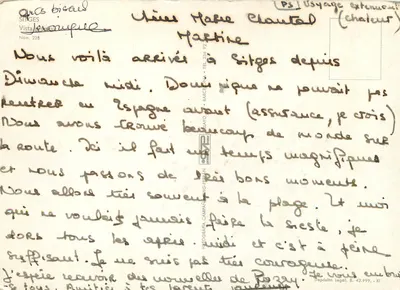 PS: Voyage extenuant
(chaleur)
gros bisous
Véronique
SITGES
Chères Marie Chantal
Martine
Nous voilà arrivés à Sitges depuis
Dimanche midi. Dominique ne pouvait pas
rentrer en Espagne avant (assurance, je crois)
Nous avons trouvé beaucoup de monde sur
la route. Ici il fait un temps magnifique
et nous passons de très bons moments.
Nous allons très souvent à la plage. Et moi
qui ne voulais jamais faire la sieste, je
dors tous les après-midi et c'est à peine
suffisant. Je ne suis pas très courageuse.
J'espère recevoir des nouvelles de Je vous embrasse
Amitiés à tes parents